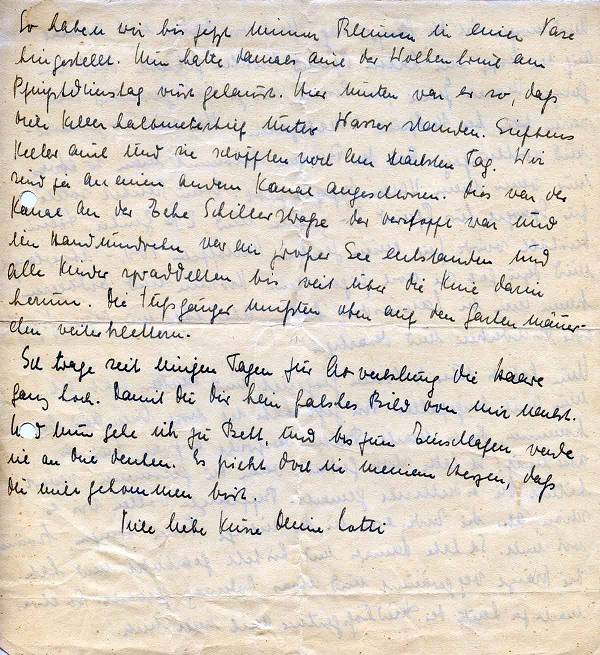 So haben wir bis jetzt immer Blumen in einer Vase
hingestellt. Nun hatte damals auch der Wolkenbruch am
Pfingstdienstag gehaust. Hier unten war es so, daß
viele Keller halbmetertief unter Wasser standen.
Keller auch und sie schöpften noch am nächsten Tag. Wir
sind ja an einen andern Kanal angeschlossen. Dies war der
Kanal an der Ecke Schillerstraße der verstopft war und
im Handumdrehen war ein großer See entstanden und
alle Kinder bis weit über die Knie darin
herum. Die Fußgänger mußten oben auf den Gartenmäuer-
chen weiterklettern.
Ich trage seit einigen Tagen zur Abwechslung die Haare
ganz hoch. Damit Du Dir kein falsches Bild von mir machst.
Und nun gehe ich zu Bett, und bis zum Einschlafen werde
ich an Dich denken. Es pocht doch in meinem Herzen, daß
Du mir gekommen bist.
Viele liebe Küsse Deine Lotti